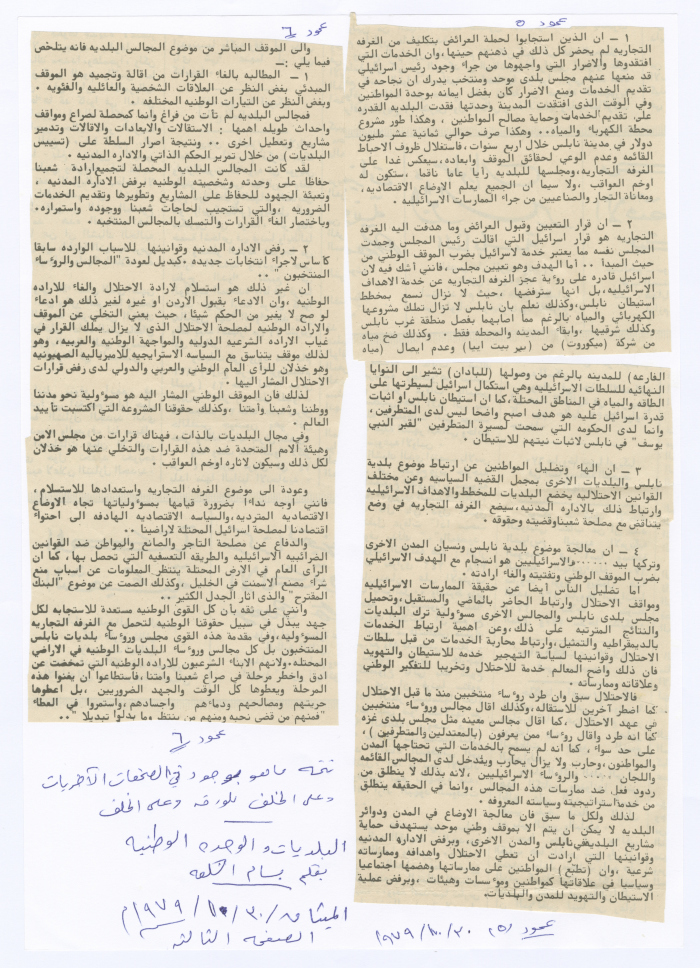 عمود ٥
١ - ان الذين استجابوا لحملة العرائض بتكليف من الغرفه
التجاريه لم يحضر كل ذلك في ذهنهم حينها، وان الخدمات التي
افتقدوها والاضرار التي واجهوها من جراء وجود رئيس اسرائيلي
قد منعها عنهم مجلس بلدي موحد ومنتخب يدرك ان نجاحه في
تقديم الخدمات ومنع الاضرار كان بفضل ايمانه بوحدة المواطنين
وفي الوقت الذى افتقدت المدينة وحدتها فقدت البلديه القدره
على تقديم الخدمات وحماية مصالح المواطنين ، وهكذا طور مشروع
محطة الكهرباء والمياه .. وهكذا صرف حوالي ثمانية عشر مليون
دولار في مدينة نابلس خلال اربع سنوات ، فاستغلال ظروف الاحباط
القائمه وعدم الوعي لحقائق الموقف وابعاده ، سيعكس غدا على
الغرفه التجاريه، ومجلسها للبلديه رايا عاما ناقما ، ستكون له
اوخم العواقب ، ولا سيما ان الجميع يعلم الاوضاع الاقتصاديه،
ومعاناة التجار والصناعيين من جراء الممارسات الاسرائيلية .
٢ - ان قرار التعيين وقبول العرائض وما هدفت اليه الغرفه
التجاريه هو قرار اسرائيل التي اقالت رئيس المجلس وجمدت
المجلس نفسه مما يعتبر خدمة لاسرائيل بضرب الموقف الوطني من
حيث المبدأ .. أما الهدف وهو تعيين مجلس ، فانني أشك فيه لان
اسرائيل قادره على رؤية عجز الغرفه التجاريه عن خدمة الاهداف
الاسرائيليه، بل انها سترفضها ، حيث لا نزال نسمع بمخطط
استيطان نابلس، وكذلك نعلم بان نابلس لا تزال تملك مشروعها
الكهربائي والمياه بالرغم مما اصابهما بفصل منطقة غرب نابلس
وكذلك شرقيها ، وابقاء المدينه والمحطه فقط . وكذلك ضخ مياه
من شركة (ميكوروت) من (بير بيت ايبا) وعدم ايصال (مياه
الفارعه) للمدينه بالرغم من وصولها (للباذان) تشير الى النوايا
النهائيه للسلطات الاسرائيليه وهي استكمال اسرائيل لسيطرتها على
الطاقه والمياه في المناطق المحتلة، كما ان استيطان نابلس او اثبات
قدرة اسرائيل عليه هو هدف اصبح واضحا ليس لدى المتطرفين ،
وانما لدى الحكومه التي سمحت لمسيرة المتطرفين "لقبر النبي
يوسف" في نابلس لاثبات نيتهم للاستيطان .
٣ - ان الهاء وتضليل المواطنين عن ارتباط موضوع بلدية
نابلس والبلديات الاخرى بمجمل القضيه السياسيه وعن مختلف
القوانين الاحتلاليه يخضع البلديات للمخطط والاهداف الاسرائيليه
وارتباط ذلك بالاداره المدنيه، سيضع الغرفه التجاريه في وضع
يتناقض مع مصلحة شعبنا وقضيته وحقوقه .
٤ - ان معالجة موضوع بلدية نابلس ونسيان المدن الاخرى
وتركها بيد ...... والاسرائيليين هو انسجام مع الهدف الاسرائيلي
بضرب الموقف الوطني وتفتيته والغاء ارادته .
اما تضليل الناس ايضا عن حقيقة الممارسات الاسرائيليه
ومواقف الاحتلال وارتباط الحاضر بالماضي والمستقبل، وتحميل
مجلس بلدي نابلس والمجالس الاخرى مسؤولية ترك البلديات
والنتائج المترتبه على ذلك، وعن اهمية ارتباط الخدمات
بالديموقراطيه والتمثيل، وارتباط محاربة الخدمات من قبل سلطات
الاحتلال وقوانينها لسياسة التهجير خدمه للاستيطان والتهويد
فان ذلك واضح المعالم خدمة للاحتلال وتخريبا للتفكير الوطني
وعلاقاته وممارساته .
فالاحتلال سبق وان طرد رؤساء منتخبين منذ ما قبل الاحتلال
كما اضطر آخرين للاستقاله، وكذلك اقال مجالس ورؤساء منتخبين
في عهد الاحتلال ، كما اقال مجالس معينه مثل مجلس بلدى غزه
كما انه طرد واقال رؤساء ممن يعرفون (بالمعتدلين والمتطرفين) ،
على حد سواء ، كما انه لم يسمح بالخدمات التي تحتاجها المدن
والمواطنون، وحارب ولا يزال يحارب ويتدخل لدى المجالس القائمه
واللجان ..... والرؤساء الاسرائيليين ،لانه بذلك لا ينطلق من
ردود فعل ضد ممارسات هذه المجالس ، وانما في الحقيقه ينطلق
من خدمة استراتيجيته وسياسته المعروفه .
لذلك ولكل ما سبق فان معالجة الاوضاع في المدن ودوائر
البلديه لا يمكن ان يتم الا بموقف وطني موحد يستهدف حماية
مشاريع البلديه في نابلس والمدن الاخرى، وبرفض الاداره المدنيه
وقوانينها التي ارادت ان تعطي الاحتلال واهدافه وممارساته
شرعية ،وان (تطبع) المواطنين على ممارساتها وهضمها اجتماعيا
وسياسيا في علاقاتها كمواطنين ومؤسسات وهيئات ، وبرفض عملية
الاستيطان والتهويد للمدن والبلديات.
عمود (٥) ٣٠/١٠/١٩٧٩
عمود ٦
والى الموقف المباشر من موضوع المجالس البلديه فانه يتلخص
فيما يلي :ــ
١ - المطالبه بالغاء القرارات من اقالة وتجميد هو الموقف
المبدئي بغض النظر عن العلاقات الشخصية والعائليه والفئويه .
وبغض النظر عن التيارات الوطنيه المختلفه .
فمجالس البلديه لم تأت من فراغ وانما كمحصلة لصراع ومواقف
واحداث طويله اهمها : الاستقالات والابعادات والاقالات وتدمير
مشاريع وتعطيل اخرى .. ونتيجة اصرار السلطة على (تسييس
البلديات) من خلال تمرير الحكم الذاتي والاداره المدنيه .
لقد كانت المجالس البلديه المحصلة لتجميع ارادة شعبنا
حفاظا على وحدته وشخصيته الوطنيه برفض الاداره المدنيه ،
وتعبئة الجهود للحفاظ على المشاريع وتطويرها وتقديم الخدمات
الضروريه ،والتي تستجيب لحاجات شعبنا ووجوده واستمراره.
وباختصار الغاء القرارات والتمسك بالمجالس المنتخبه .
٢ - رفض الاداره المدنيه وقوانينها للاسباب الوارده سابقا
كأساس لاجراء انتخابات جديده .كبديل لعودة "المجالس والرؤساء
المنتخبون" ..
ان غير ذلك هو استسلام لارادة الاحتلال والغاء للاراده
الوطنيه ،وان الادعاء بقبول الاردن او غيره لغير ذلك هو ادعاء
لو صح لا يغير من الحكم شيئا، حيث يعني التخلي عن الموقف
والاراده الوطنيه لمصلحة الاحتلال الذى لا يزال يملك القرار في
غياب الاراده الشرعيه الدوليه والمواجهة الوطنيه والعربيه، وهو
لذلك موقف يتناسق مع السياسه الاستراتيجيه للامبرياليه الصهيونيه
وهو خذلان للرأى العام الوطني والعربي والدولي لدى رفض قرارات
الاحتلال المشار اليها .
لذلك فان الموقف الوطني المشار اليه هو مسؤولية نحو مدننا
ووطننا وشعبنا وأمتنا ،وكذلك حقوقنا المشروعه التي اكتسبت تأييد
العالم .
وفي مجال البلديات بالذات ، فهناك قرارات من مجلس الامن
وهيئة الامم المتحدة ضد هذه القرارات والتخلي عنها هو خذلان
لكل ذلك وسيكون لاثاره اوخم العواقب .
وعودة الى موضوع الغرفه التجاريه واستعدادها للاستسلام ،
فانني أوجه نداءا بضرورة قيامها بمسؤولياتها تجاه الاوضاع
الاقتصاديه المترديه، والسياسه الاقتصاديه الهادفه الى احتواء
اقتصادنا لمصلحة اسرائيل المحتلة لاراضينا ..
والدفاع عن مصلحة التاجر والصانع والمواطن ضد القوانين
الضرائبية الاسرائيلية والطريقه التعسفيه التي تحصل بها، كما ان
الرأى العام في الارض المحتلة ينتظر المعلومات عن اسباب منع
شراء مصنع الاسمنت في الخليل ، وكذلك الصمت عن موضوع "البنك
المقترح" والذى اثار الجدل الكثير ..
وانني على ثقه بان كل القوى الوطنيه مستعدة للاستجابه لكل
جهد يبذل في سبيل حقوقنا الوطنيه لتحمل مع الغرفه التجاريه
المسؤوليه، وفي مقدمة هذه القوى مجلس ورؤساء بلديات نابلس
المنتخبون بل كل مجالس ورؤساء البلديات الوطنيه في الاراضي
المحتله، ولانهم الابناء الشرعيون للاراده الوطنيه التي تمخضت عن
ادق واخطر مرحلة في صراع شعبنا وأمتنا، فاستطاعوا ان يغنوا هذه
المرحلة ويعطوها كل الوقت والجهد الضروريين ، بل اعطوها
حريتهم ومصالحهم ودماءهم واجسادهم، واستمروا في العطاء
"فمنهم من قضى نحبه ومنهم من ينتظر وما بدلوا تبديلا" ..
عمود ٦
تتمه ما هو موجود في الصفحات الاخريات
وعلى الخلف للورقه وعلى الخلف
البلديات والوحده الوطنيه
بقلم بسام الشكعه
الميثاق ٣٠/١٠/١٩٧٩م
الصفحه الثالثه